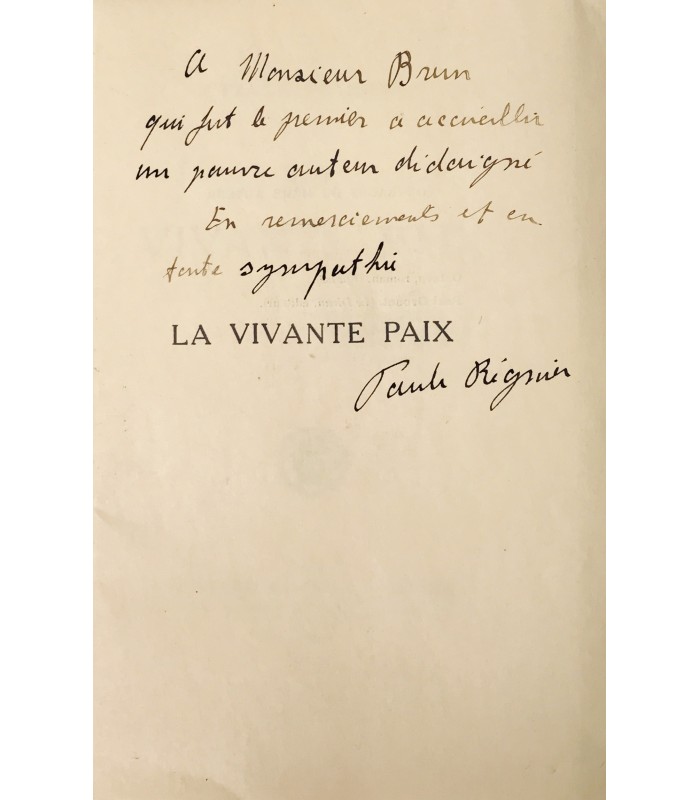 A Monsieur Brun
qui fut le premier à accueillir
un pauvre auteur dédaigné
En remerciements et en
toute sympathie
LA VIVANTE PAIX
Paule Régnier